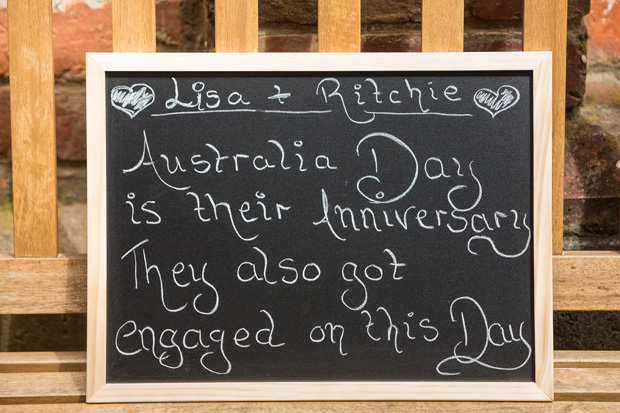 Lisa + Ritchie
Australia Day
is their Anniversary
They also got
engaged on this Day